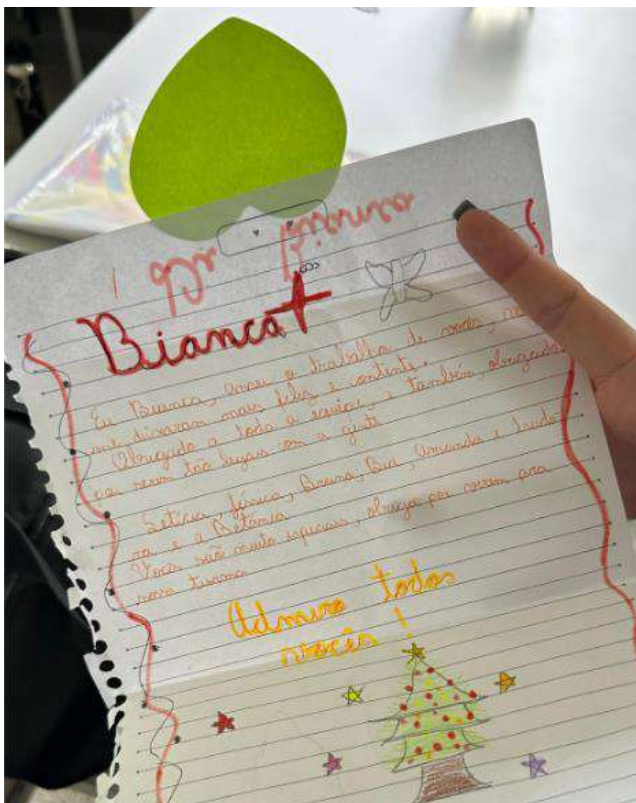 Bianca
Eu Bianca, amei o trabalho de vocês,
me deixaram mais feliz e contente.
Obrigado a toda a equipe, e também, obrigada
por serem tão legais com a gente
Letícia, Jéssica, Bruna, Bia, Amanda e
ra e a Betânia
Vocês são muito especiais, obriga por serem pra
nossa turma
Admiro todos
vocês!